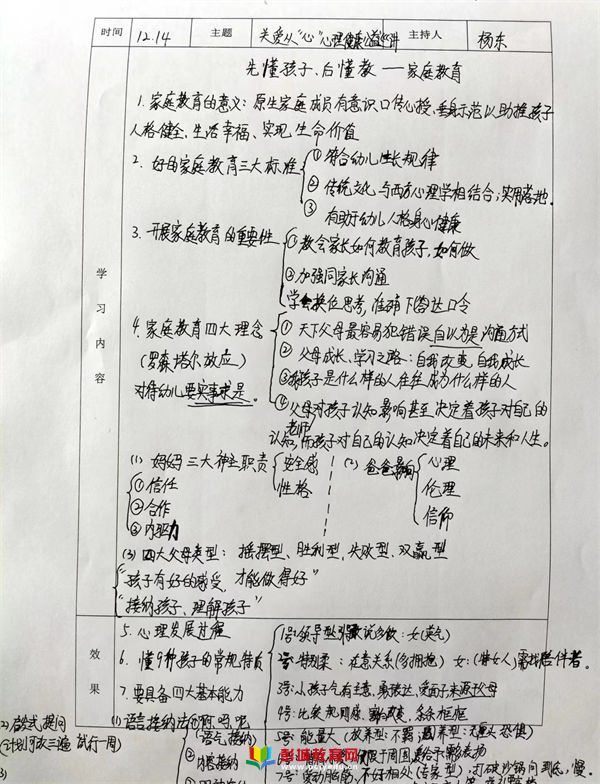 时间 12.14 主题 关爱从“心”心理健康公益讲 主持人 杨东
先懂孩子、后懂教——家庭教育
1.家庭教育的意义：原生家庭成员有意识口传心授、垂身示范以助推孩子
人格健全、生活幸福、实现生命价值
2.好母家庭教育三大标准
①符合幼儿成长规律
②传统文化与西方心理学相结合;实用落地.
③有助于幼儿人格身心健康
3.开展家庭教育的重要性
①教会家长如何教育孩子,如何做
②加强同家长沟通
学会换位思考,准确下答达口令
学习内容
4.家庭教育四大理念
(罗森塔尔效应)
对待幼儿要实事求是。
①天下父母最容易犯错误自以为是沟通方式
②父母成长、学习之路:自我改变,自我成长
③我孩子是什么样的人往往成为什么样的人
④父母对孩子认知影响甚至决定着孩子对自己的
老师
认知,而孩子对自己的认知决定着自己的未来和人生。
(1)妈妈三大神圣职责
安全感
性格
①信任
②合作
③内驱力
(2)爸爸影响
心理
伦理
信仰
(3)四大父母类型:摇摆型、胜利型、失败型、双赢型
“孩子有好的感受,才能做得好”
“接纳孩子、理解孩子”
效果
5.心理发展过程
6.懂9种孩子的常规特质
7.要具备四大基本能力
1号:领导型 女(英气)
2号:特别柔:在意关系(多拥抱) 女:(特女人)需找陪伴者.
3号:小孩子气有主意,勇表达、受面子来源于父母
4号:比较规则感、条条框框
(1)语言接纳法
①啊,吧,呢
语气接纳
2)启发式提问
(计划可改三遍 试行一周)
5号:能量大(放养型:不羁;
7号:
打破沙锅问到底,慢.
彭城教育网
www.pceyung.com